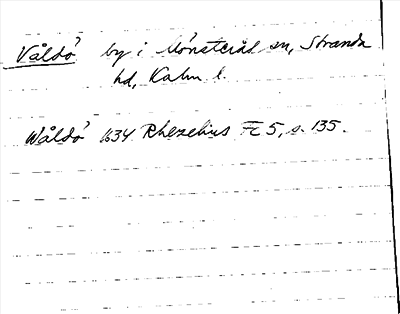 Våldö by i Mönsterås sn, Stranda
hd, Kalm l.
Wåldö 1634 Rhezelius Fc 5, s. 135.